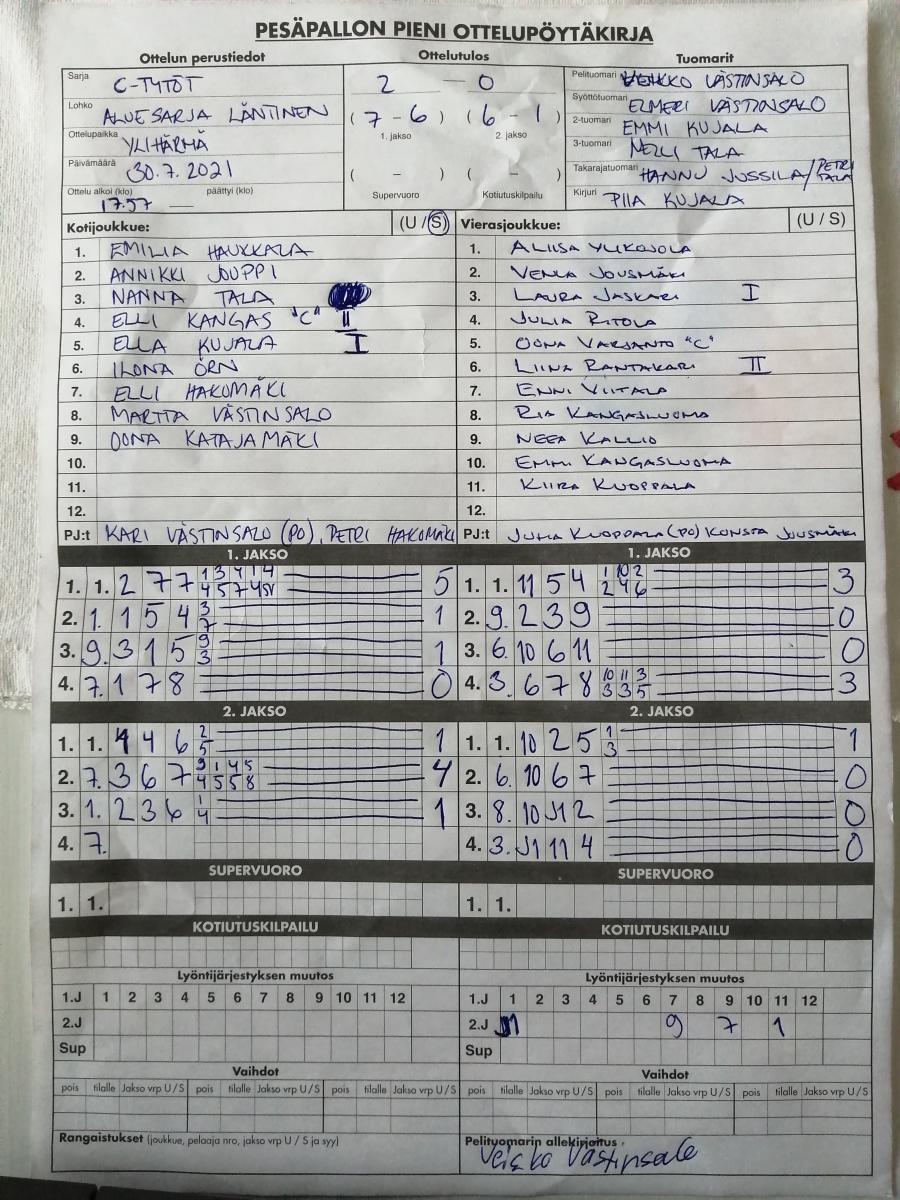 PESÄPALLON PIENI OTTELUPÖYTÄKIRJA
Ottelun perustiedot Ottelutulos Tuomarit
Sarja C-TYTÖT
Lohko ALUESARJA LÄNTINEN
Ottelupaikka YLIHÄRMÄ
Päivämäärä 30.7.2021
Ottelu alkoi (klo) 17.57 päättyi (klo) —
2 — 0
(7 - 6) (6 - 1)
1. jakso 2. jakso
( - ) ( - )
Supervuoro Kotiutuskilpailu
Pelituomari VEIKKO VÄSTINSALO
Syöttötuomari ELMERI VÄSTINSALO
2-tuomari EMMI KUJALA
3-tuomari NELLI TALA
Takarajatuomari HANNU JUSSILA/PETRI TALA
Kirjuri PIIA KUJALA
Kotijoukkue: (U / S)
1. EMILIA HAUKKALA
2. ANNIKKI JOUPPI
3. NANNA TALA
4. ELLI KANGAS "C" II
5. ELLA KUJALA I
6. ILONA ÖRN
7. ELLI HAKOMÄKI
8. MARTTA VÄSTINSALO
9. OONA KATAJAMÄKI
10.
11.
12.
PJ:t KARI VÄSTINSALO (PO), PETRI HAKOMÄKI
Vierasjoukkue: (U / S)
1. ALIISA YLIKOJOLA
2. VENLA JOUSMÄKI
3. LAURA JASKARI I
4. JULIA RITOLA
5. OONA VARSANTO "C"
6. LIINA RANTAKARI II
7. ENNI VIITALA
8. RIA KANGASLUOMA
9. NEEA KALLIO
10. EMMI KANGASLUOMA
11. KIIRA KUOPPALA
12.
PJ:t JUHA KUOPPALA (PO) KONSTA JOUSMÄKI
1. JAKSO
1. 1. 2 7 7 5
2. 1. 1 5 4 3/7 1
3. 9. 3 1 5 9/3 1
4. 7. 1 7 8 0
1. JAKSO
1. 1. 11 5 4 1/2 10/4 2/6 3
2. 9. 2 3 9 0
3. 6. 10 6 11 0
4. 3. 6 7 8 10/3 11/3 3/5 3
2. JAKSO
1. 1. 4 4 6 2/5 1
2. 7. 3 6 7 3/4 1/5 4/5 5/8 4
3. 1. 2 3 6 1/4 1
4. 7.
2. JAKSO
1. 1. 10 2 5 1/3 1
2. 6. 10 6 7 0
3. 8. 10 J1 2 0
4. 3. J1 11 4 0
SUPERVUORO
1. 1.
SUPERVUORO
1. 1.
KOTIUTUSKILPAILU
KOTIUTUSKILPAILU
Lyöntijärjestyksen muutos
1.J 1 2 3 4 5 6 7 8 9 10 11 12
2.J
Sup
Lyöntijärjestyksen muutos
1.J 1 2 3 4 5 6 7 8 9 10 11 12
2.J 9 7 1
Sup
Vaihdot
pois tilalle Jakso vrp U / S pois tilalle Jakso vrp U / S pois tilalle Jakso vrp U / S
Vaihdot
pois tilalle Jakso vrp U / S pois tilalle Jakso vrp U / S pois tilalle Jakso vrp U / S
Rangaistukset (joukkue, pelaaja nro, jakso vrp U / S ja syy)
Pelituomarin allekirjoitus
Veikko Västinsalo